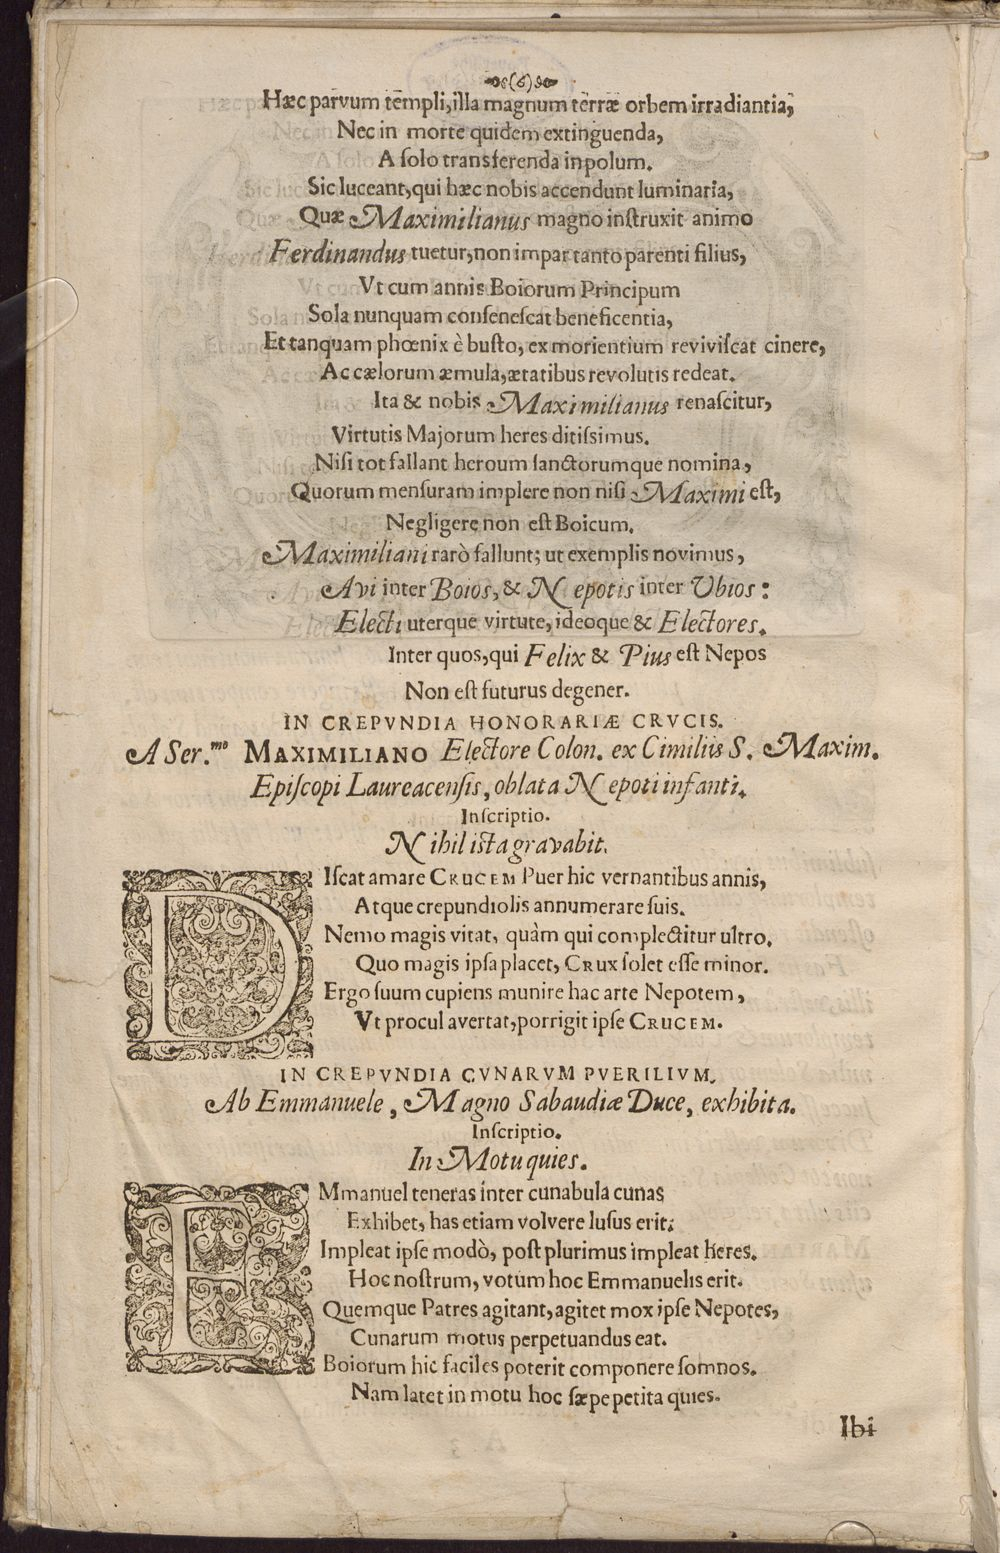 (6)
Hæc parvum templi, illa magnum terræ orbem irradiantia,
Nec in morte quidem extinguenda,
A ſolo transferenda in polum.
Sic luceant, qui hæc nobis accendunt luminaria,
Quæ Maximilianus magno inſtruxit animo
Ferdinandus tuetur, non impar tanto parenti filius,
Vt cum annis Boiorum Principum
Sola nunquam conſeneſcat beneficentia,
Et tanquam phœnix è buſto, ex morientium reviviſcat cinere,
Ac cælorum æmula, ætatibus revolutis redeat.
Ita & nobis Maximilianus renaſcitur,
Virtutis Majorum heres ditiſsimus.
Niſi tot fallant heroum ſanctorumque nomina,
Quorum menſuram implere non niſi Maximi eſt,
Negligere non eſt Boicum.
Maximiliani rarò fallunt; ut exemplis novimus,
Avi inter Boios, & Nepotis inter Vbios:
Electi uterque virtute, ideoque & Electores.
Inter quos, qui Felix & Pius eſt Nepos
Non eſt futurus degener.
IN CREPVNDIA HONORARIÆ CRVCIS.
A Ser.mo MAXIMILIANO Electore Colon. ex Cimiliis S. Maxim.
Epiſcopi Laureacenſis, oblata Nepoti infanti.
Inſcriptio.
Nihil iſta gravabit.
DIſcat amare CRUCEM Puer hic vernantibus annis,
Atque crepundiolis annumerare ſuis.
Nemo magis vitat, quàm qui complectitur ultro.
Quo magis ipſa placet, CRUX ſolet eſſe minor.
Ergo ſuum cupiens munire hac arte Nepotem,
Vt procul avertat, porrigit ipſe CRUCEM.
IN CREPVNDIA CVNARVM PVERILIVM.
Ab Emmanuele, Magno Sabaudiæ Duce, exhibita.
Inſcriptio.
In Motu quies.
EMmanuel teneras inter cunabula cunas
Exhibet, has etiam volvere luſus erit.
Impleat ipſe modò, poſt plurimus impleat heres.
Hoc noſtrum, votum hoc Emmanuelis erit.
Quemque Patres agitant, agitet mox ipſe Nepotes,
Cunarum motus perpetuandus eat.
Boiorum hic faciles poterit componere ſomnos.
Nam latet in motu hoc ſæpe petita quies.
Ibi